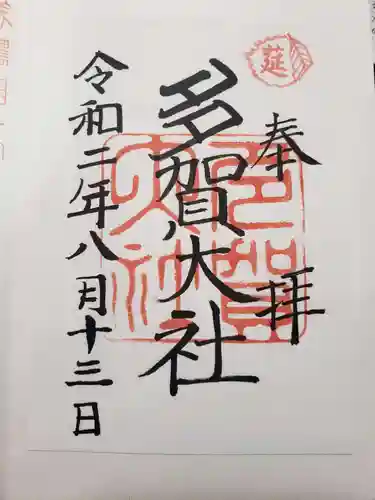 奉拝
延
多賀大社
多賀大社
令和二年八月十三日